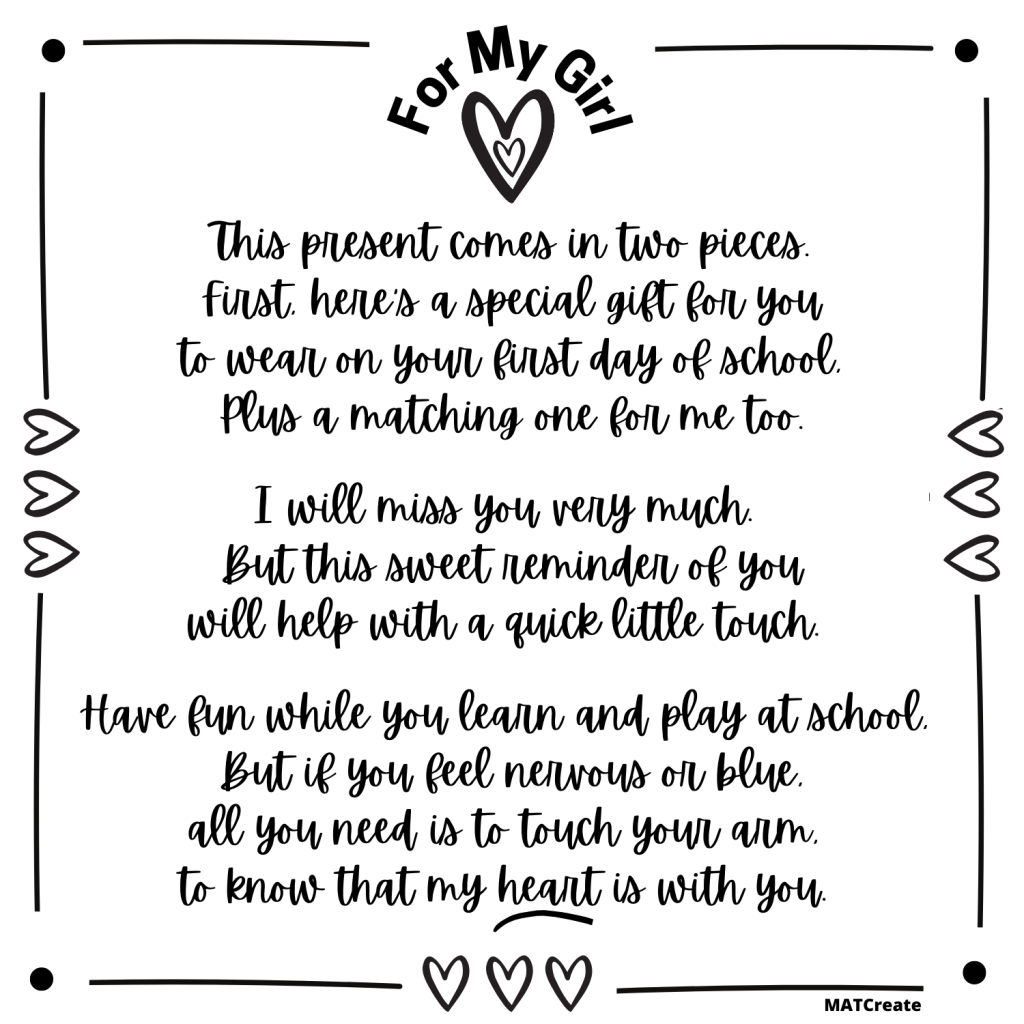 For My Girl
This present comes in two pieces.
First, here's a special gift for you
to wear on your first day of school.
Plus a matching one for me too.
I will miss you very much.
But this sweet reminder of you
will help with a quick little touch.
Have fun while you learn and play at school.
But if you feel nervous or blue,
all you need is to touch your arm,
to know that my heart is with you.
MATCreate